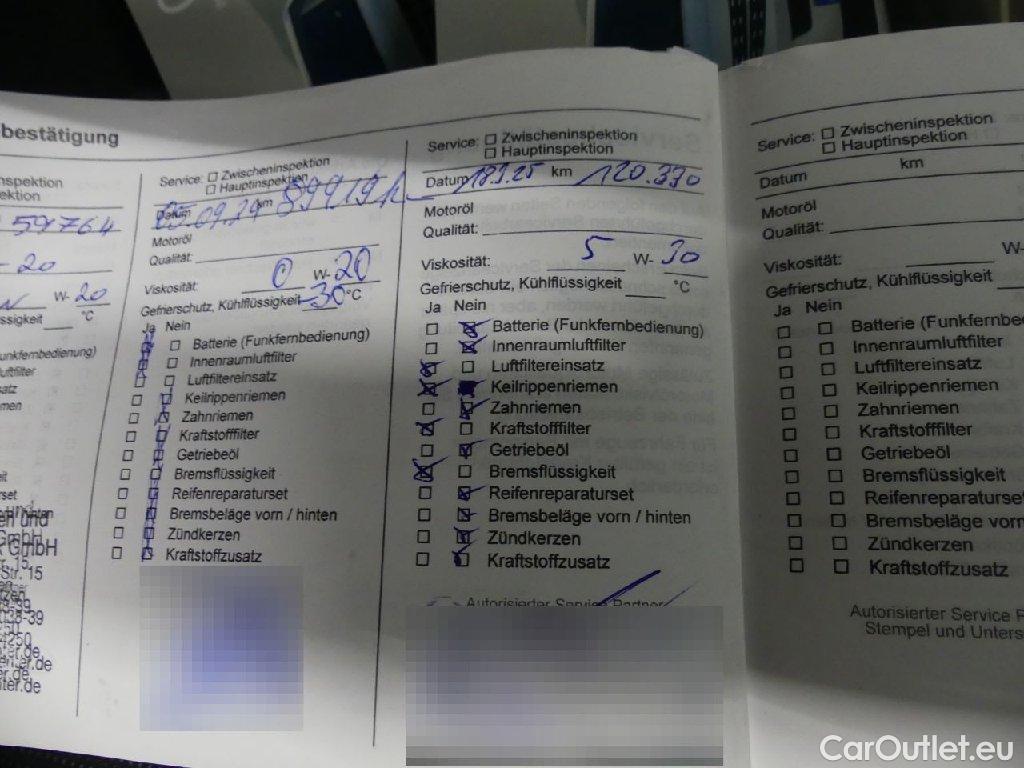 bestätigung
nspektion
ektion
59764
- 20
W- 20
ssigkeit °C
unkfernbedienung)
tfilter
satz
men
eit
urset
GmbH
Str. 15
Service: Zwischeninspektion
Hauptinspektion
Datum 05.09.24 km 89919
Motoröl
Qualität:
Viskosität: 0 W- 20
Gefrierschutz, Kühlflüssigkeit -30 °C
Ja Nein
Batterie (Funkfernbedienung)
Innenraumluftfilter
Luftfiltereinsatz
Keilrippenriemen
Zahnriemen
Kraftstofffilter
Getriebeöl
Bremsflüssigkeit
Reifenreparaturset
Bremsbeläge vorn / hinten
Zündkerzen
Kraftstoffzusatz
Service: Zwischeninspektion
Hauptinspektion
Datum 18.9.25 km 120.330
Motoröl
Qualität:
Viskosität: 5 W- 30
Gefrierschutz, Kühlflüssigkeit °C
Ja Nein
Batterie (Funkfernbedienung)
Innenraumluftfilter
Luftfiltereinsatz
Keilrippenriemen
Zahnriemen
Kraftstofffilter
Getriebeöl
Bremsflüssigkeit
Reifenreparaturset
Bremsbeläge vorn / hinten
Zündkerzen
Kraftstoffzusatz
Autorisierter Service Partner
Service: Zwischeninspektion
Hauptinspektion
Datum km
Motoröl
Qualität:
Viskosität: W-
Gefrierschutz, Kühlflüssigkeit
Ja Nein
Batterie (Funkfernbe
Innenraumluftfilter
Luftfiltereinsatz
Keilrippenriemen
Zahnriemen
Kraftstofffilter
Getriebeöl
Bremsflüssigkeit
Reifenreparaturset
Bremsbeläge vorn
Zündkerzen
Kraftstoffzusatz
Autorisierter Service P
Stempel und Unters
CarOutlet.eu